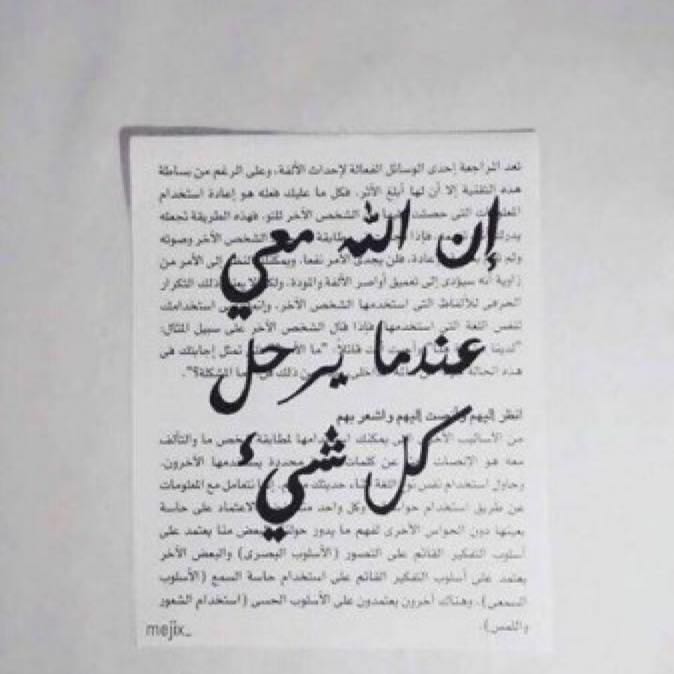 تعد المراجعة إحدى الوسائل الفعالة لإحداث الألفة، وعلى الرغم من بساطة
هذه التقنية إلا أن لها أبلغ الأثر. فكل ما عليك فعله هو إعادة استخدام
التي الشخص الآخر للتو. فهذه الطريقة تجعله
إن الله معي
الشخص الآخر وصوته
فلن يجدي الأمر نفعا، إلى الأمر من
زاوية أنه سيؤدي إلى تعميق أواصر الألفة والمودة. ذلك التكرار
الحرفي للألفاظ التي استخدمها الشخص الآخر، استخدامك
لنفس اللغة التي استخدمها. فإذا قال الشخص الآخر على سبيل المثال:
عندما يرحل
"لدينا قائلا: "ما تمثل إجابتك في
هذه الحالة من ذلك في المشكلة؟".
انظر إليهم وأنصت إليهم واشعر بهم
من الأساليب التي يمكنك لمطابقة شخص ما والتآلف
كل شيء
معه هو الإنصات عن كلمات محددة يستخدمها الآخرون.
وحاول استخدام نفس اللغة أثناء حديثك نتعامل مع المعلومات
عن طريق استخدام وكل واحد الاعتماد على حاسة
بعينها دون الحواس الأخرى لفهم ما يدور منا يعتمد على
أسلوب التفكير القائم على التصور (الأسلوب البصري) والبعض الآخر
يعتمد على أسلوب التفكير القائم على استخدام حاسة السمع (الأسلوب
السمعي). وهناك آخرون يعتمدون على الأسلوب الحسي (استخدام الشعور
واللمس).
mejix_